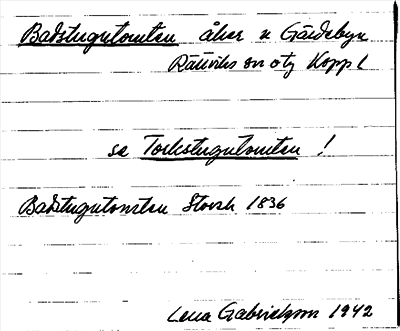 Badstugutomten åker v Gärdebyn
Rättviks sn o tg Kopp l
se Torkstugutomten !
Badstugutomten Storsk 1836
Lena Gabrielsson 1942